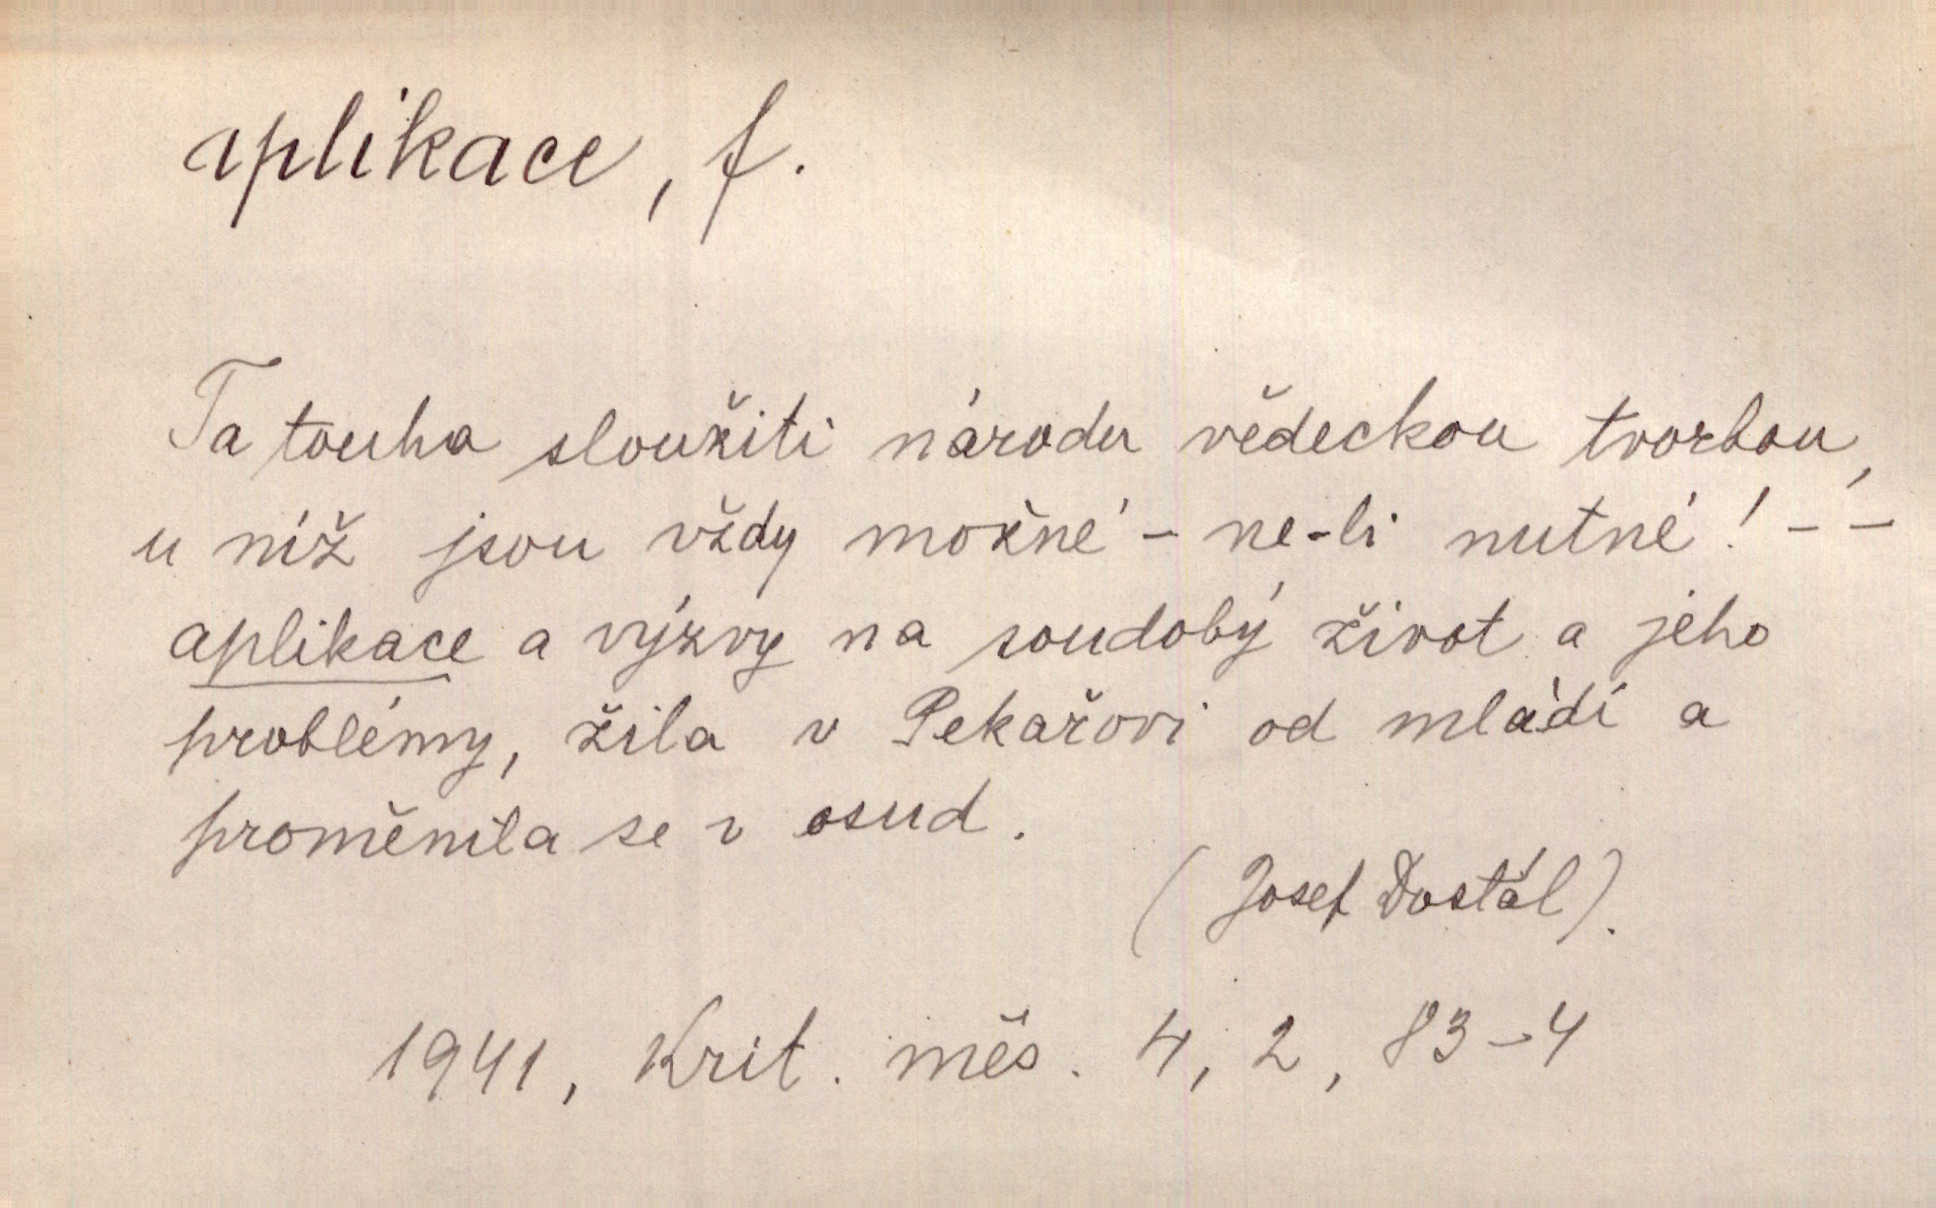 aplikace, f.
Ta touha sloužiti národu vědeckou tvorbou,
u níž jsou vždy možné – ne-li nutné! – –
aplikace a výzvy na soudobý život a jeho
problémy, žila v Pekařovi od mládí a
proměnila se v osud.
(Josef Dostál).
1941, Krit. měs. 4, 2, 83–4